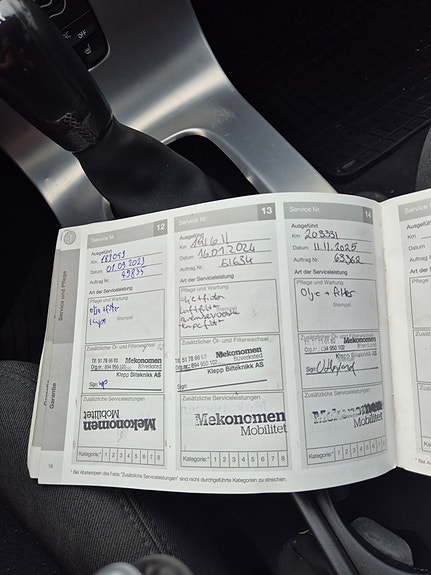 OFF
Service und Pflege
Garantie
Service Nr. 12
Ausgeführt
Km 181051
Datum 01.09.2023
Auftrag Nr. 49835
Art der Serviceleistung
Pflege und Wartung
olje+filter
Stempel
Zusätzlicher Öl- und Filterwechsel
Tlf. 51 78 66 60 Mekonomen
Org.nr.: 894 950 102 Bilverksted
Klepp Bilteknikk AS
Sign.
Zusätzliche Serviceleistungen
Mekonomen
Mobilitet
Kategorie:* 1 2 3 4 5 6 7 8
Service Nr. 13
Ausgeführt
Km 191611
Datum 16.01.2024
Auftrag Nr. 51634
Art der Serviceleistung
Pflege und Wartung
olje+filter
luftfilter
Stempel
Zusätzlicher Öl- und Filterwechsel
Tlf. 51 78 66 60 Mekonomen
Org.nr.: 894 950 102 Bilverksted
Klepp Bilteknikk AS
Sign.
Zusätzliche Serviceleistungen
Mekonomen
Mobilitet
Kategorie:* 1 2 3 4 5 6 7 8
Service Nr. 14
Ausgeführt
Km
Datum 11.11.2025
Auftrag Nr. 63362
Art der Serviceleistung
Pflege und Wartung
Olje + filter
Stempel
Zusätzlicher Öl- und Filterwechsel
Tlf. 51 78 66 60 Mekonomen
Org.nr.: 894 950 102 Bilverksted
Klepp Bilteknikk AS
Sign.
Zusätzliche Serviceleistungen
Mekonomen
Mobilitet
Kategorie:* 1 2 3 4 5 6 7 8
18
* Bei Abstempeln des Felds "Zusätzliche Serviceleistungen" sind nicht durchgeführte Kategorien zu streichen.